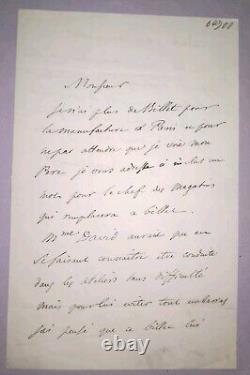 Monsieur
Je n'ai plus de Billet pour
la manufacture et Paris et pour
ne pas attendre que je voie mon
Pere je vous adresse ci inclus un
mot pour le chef des magasins
qui remplacera ce billet.
Mme David aurait pu en
se faisant connaitre être conduite
dans les ateliers sans difficulté
mais pour lui eviter tout embarras
j'ai pensé que ce billet lui